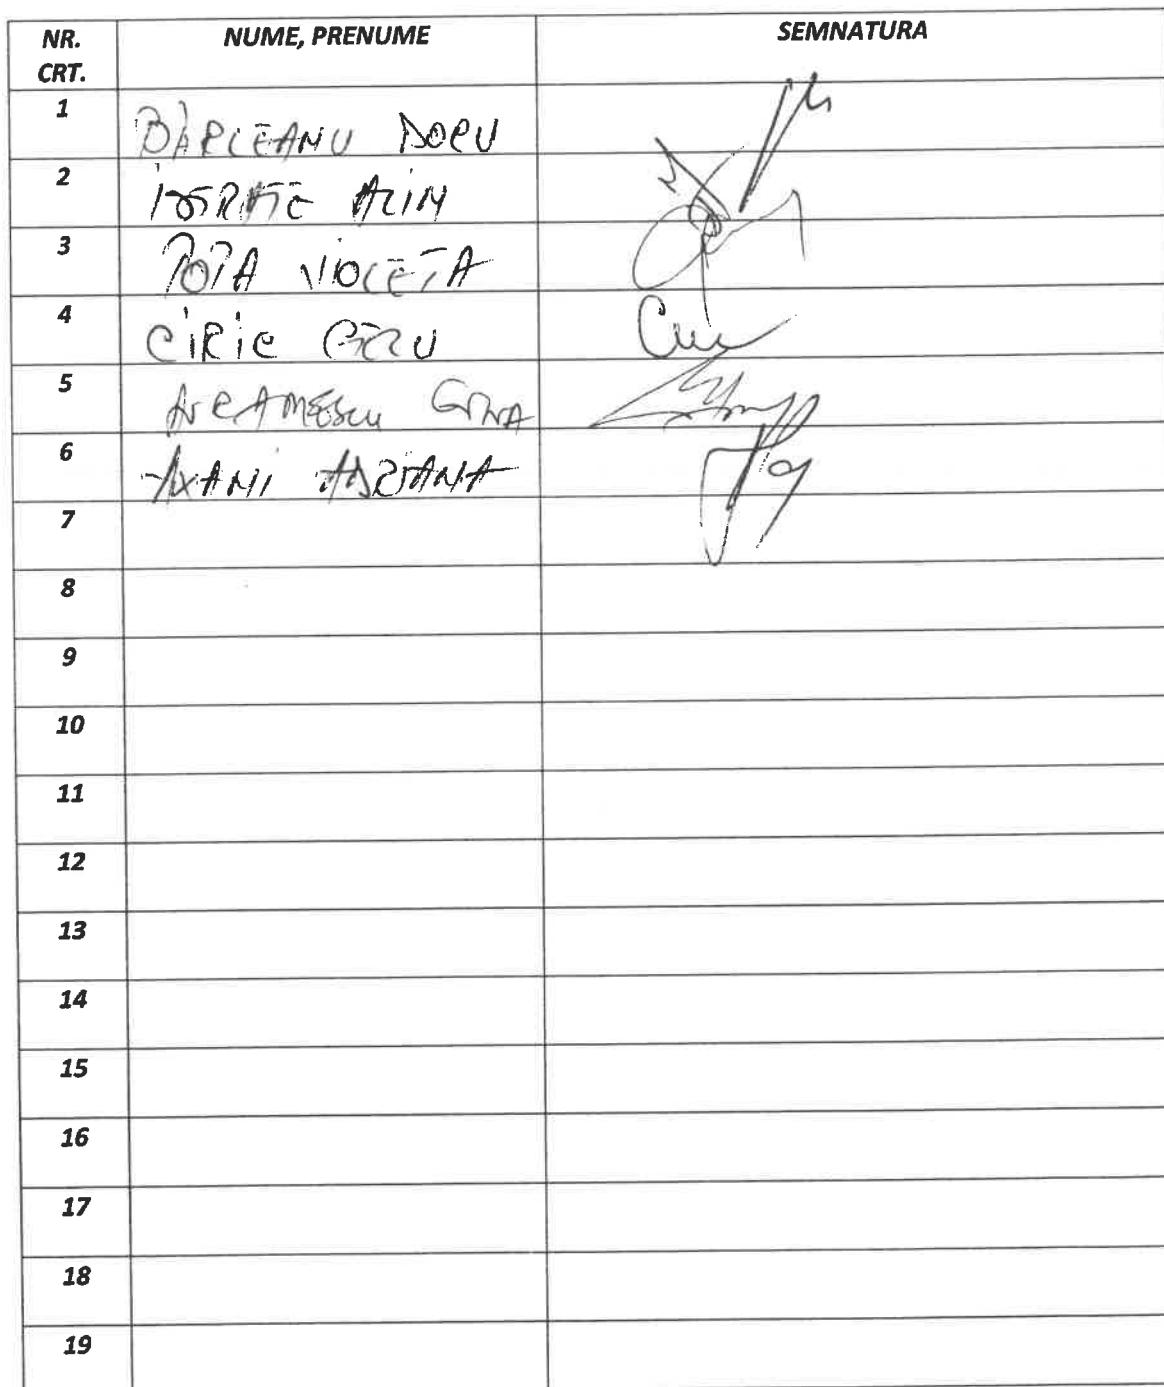 NR. CRT. NUME, PRENUME SEMNATURA
1 BÂRLEANU DORU
2 ISTRATE ALIN
3 POPA VIOLETA
4 CIRIC
5 AVRAMESCU GINA
6 AXANI ADRIANA
7
8
9
10
11
12
13
14
15
16
17
18
19